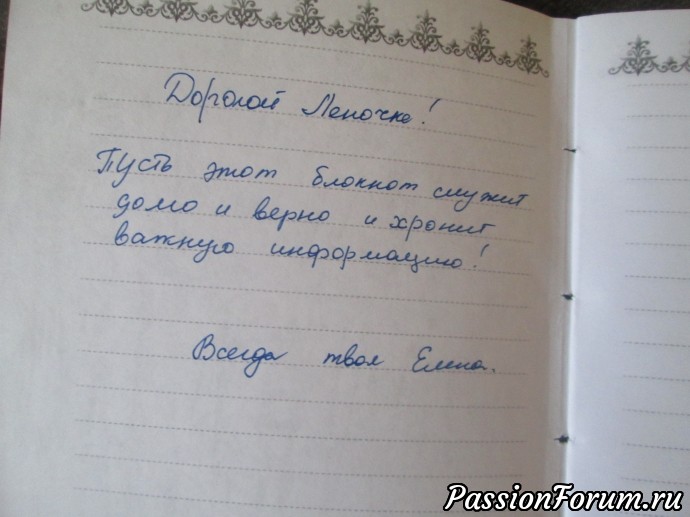 Дорогой Леночке!
Пусть этот блокнот служит
долго и верно и хранит
важную информацию!
Всегда твоя Елена.
PassionForum.ru